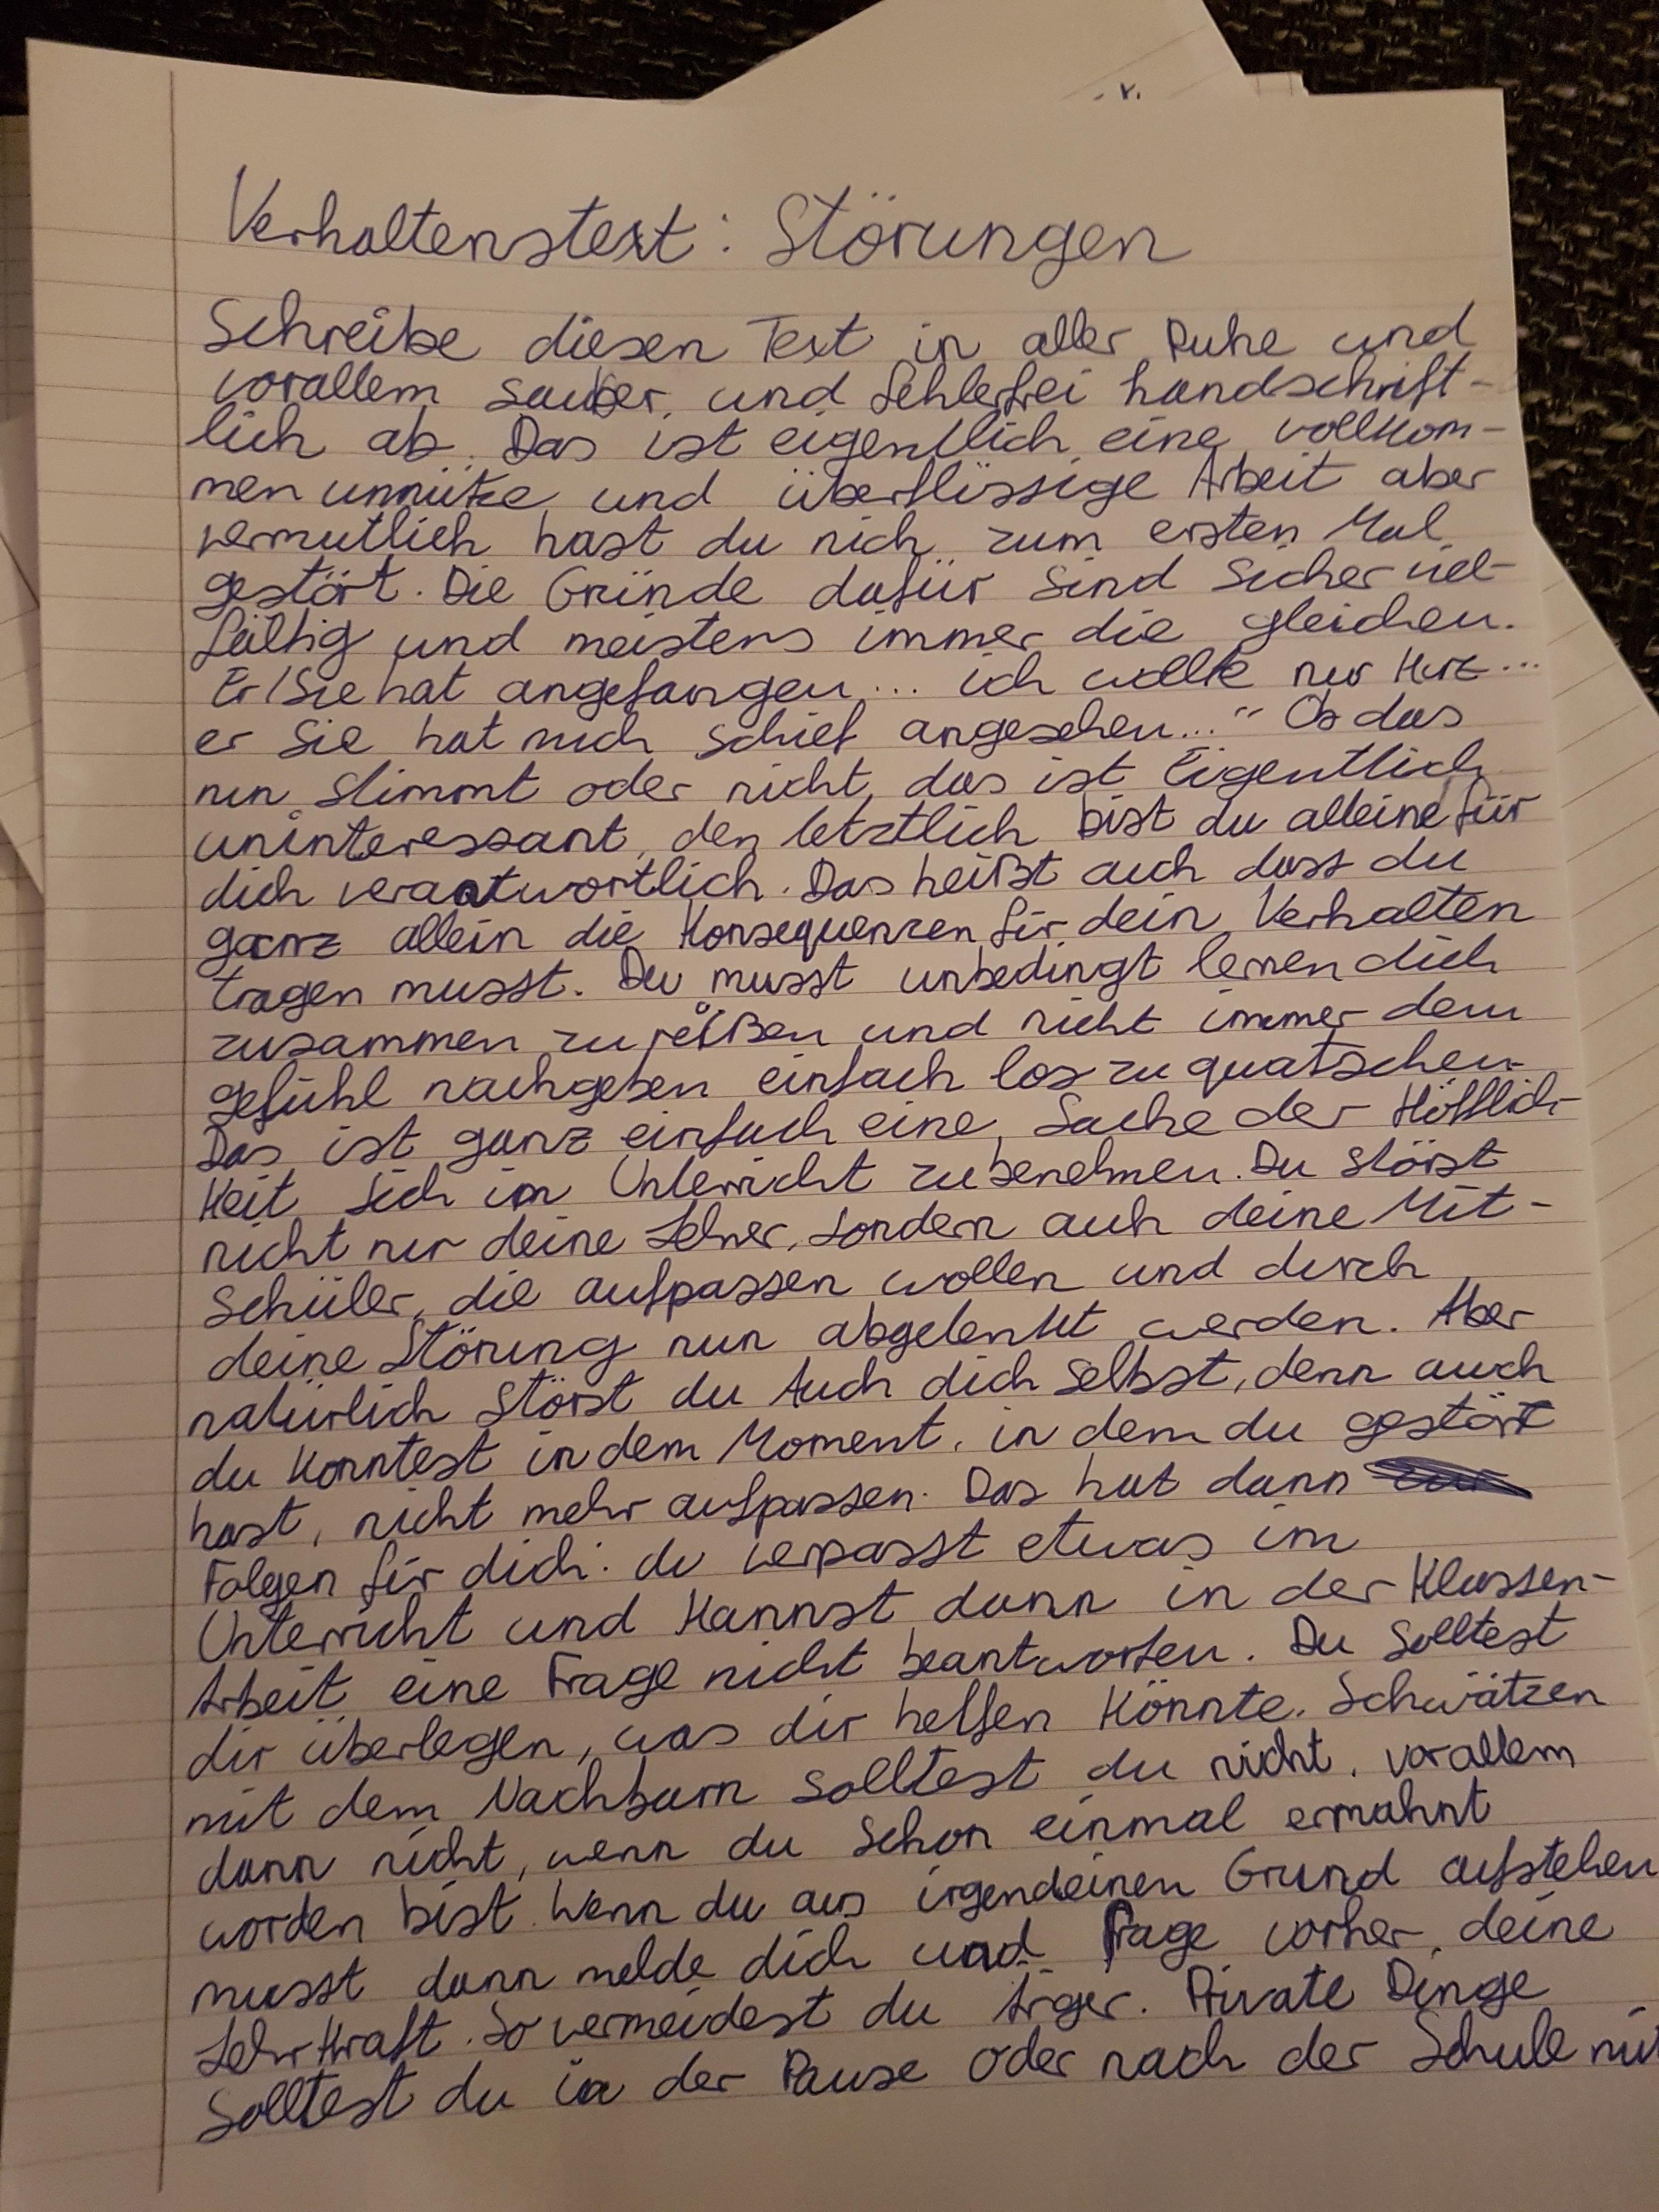 Verhaltenstext: Störungen
Schreibe diesen Text in aller Ruhe und
vorallem sauber, und fehlerfrei handschrift-
lich ab. Das ist eigentlich eine vollkom-
men unnütze und überflüssige Arbeit aber
vermutlich hast du nich zum ersten Mal
gestört. Die Gründe dafür sind sicher viel-
fältig und meistens immer die gleichen.
Er/Sie hat angefangen... ich wollte nur kurz...
er Sie hat mich schief angesehen..." Ob das
nun stimmt oder nicht, das ist Eigentlich
uninteressant, den letztlich bist du alleine für
dich verantwortlich. Das heißt auch dass du
ganz allein die Konsequenzen für dein Verhalten
tragen musst. Du musst unbedingt lernen dich
zusammen zu reißen und nicht immer dem
gefühl nachgeben einfach los zu quatschen.
Das ist ganz einfach eine Sache der Höfflich-
keit sich im Unterricht zu benehmen. Du störst
nicht nur deine Lehrer, sondern auch deine Mit-
Schüler, die aufpassen wollen und durch
deine Störung nun abgelenkt werden. Aber
natürlich störst du Auch dich selbst, denn auch
du konntest in dem Moment, in dem du gestört
hast, nicht mehr aufpassen. Das hat dann
Folgen für dich: du verpasst etwas im
Unterricht und kannst dann in der Klassen-
Arbeit eine Frage nicht beantworten. Du solltest
dir überlegen, was dir helfen könnte. Schwätzen
mit dem Nachbarn solltest du nicht, vorallem
dann nicht, wenn du schon einmal ermahnt
worden bist. Wenn du aus irgendeinen Grund aufstehen
musst dann melde dich und frage vorher, deine
Lehrkraft. So vermeidest du Ärger. Private Dinge
Solltest du in der Pause oder nach der Schule mit